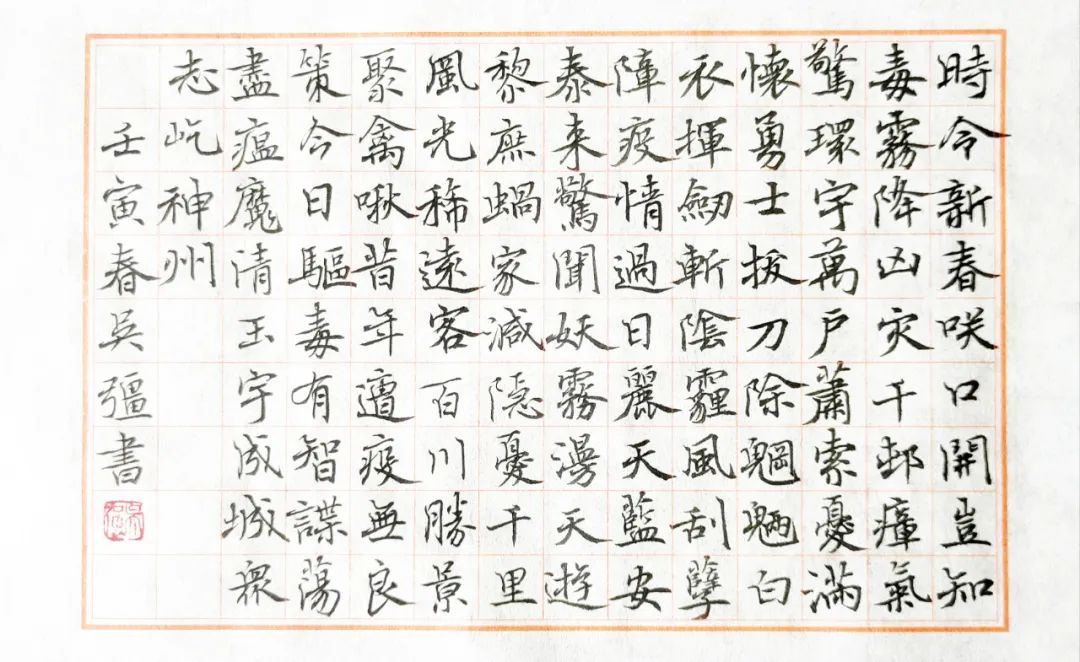 時令新春咲口開豈知
毒霧降凶灾千邨瘴氣
驚環宇萬戶蕭索憂滿
懷勇士拔刀除魍魎白
衣揮劔斬陰霾風刮孽
障疫情過日麗天藍安
泰来驚聞妖霧漫天遊
黎庶蝸家減隱憂千里
風光稀遠客百川勝景
聚禽啾昔年遭疫無良
策今日驅毒有智諜蕩
盡瘟魔清玉宇成城衆
志屹神州
壬寅春吳彊書